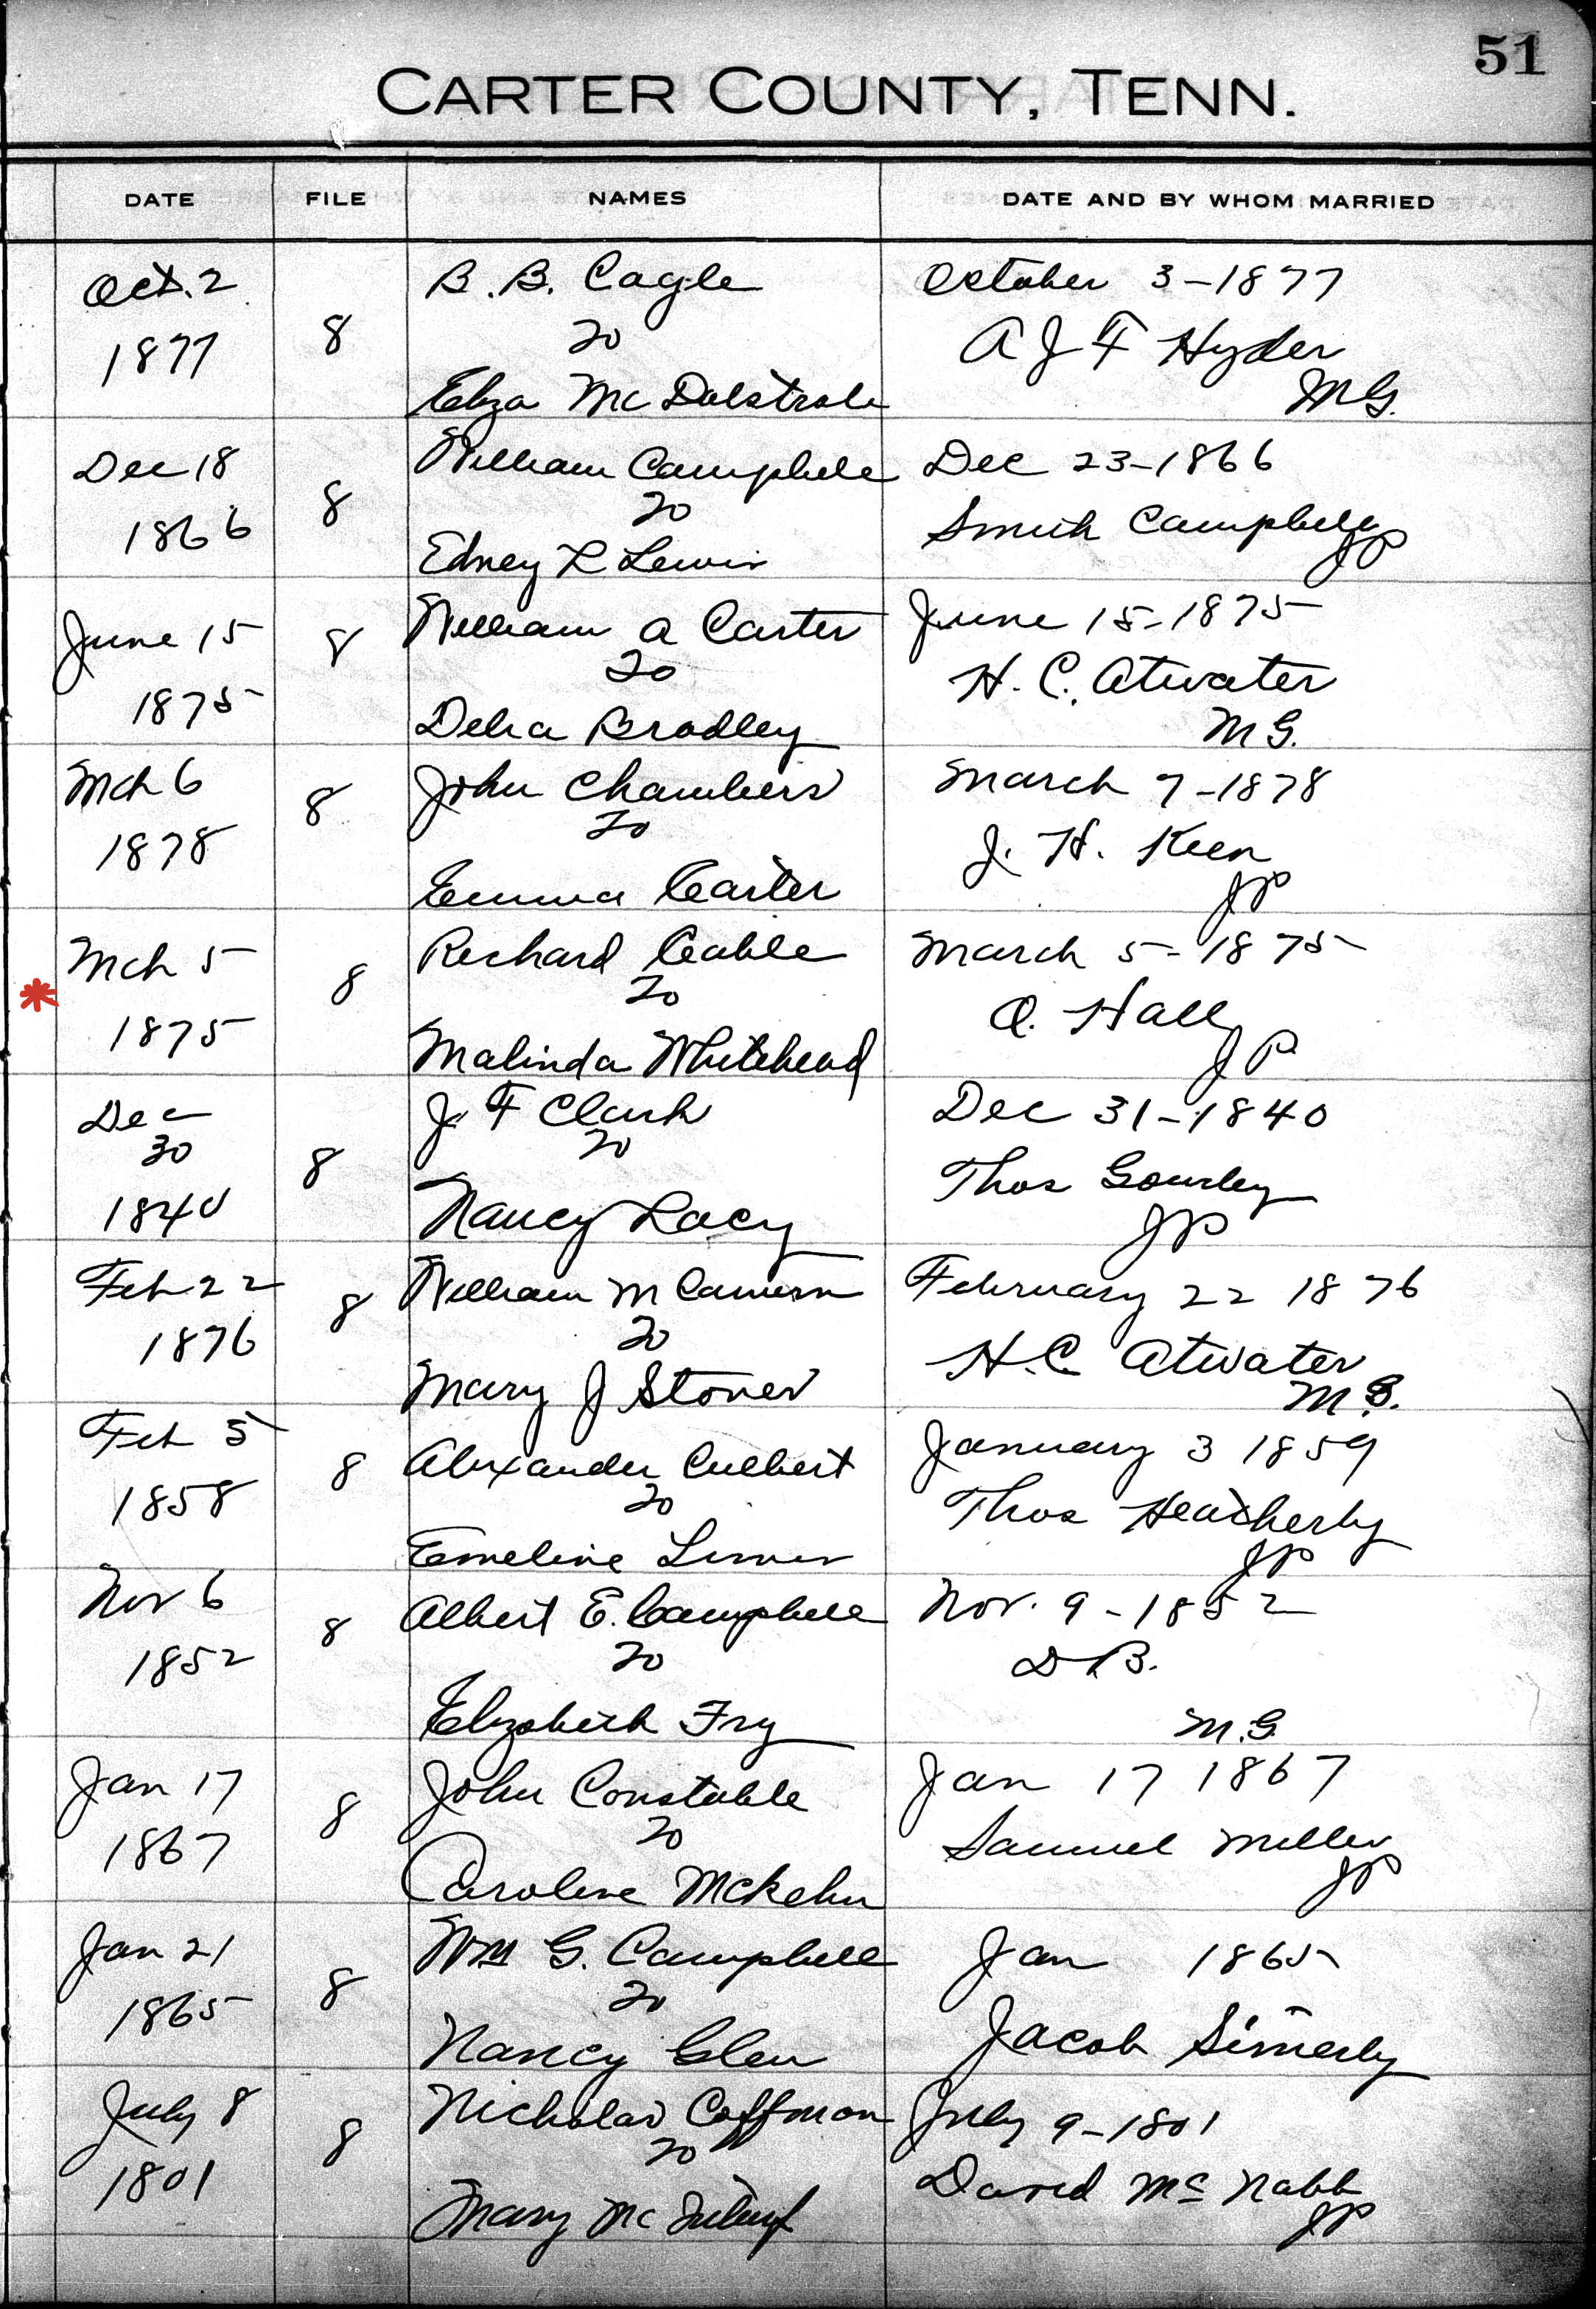 51
CARTER COUNTY, TENN.
DATE FILE NAMES DATE AND BY WHOM MARRIED
Oct. 2 B. B. Cagle October 3-1877
1877 8 To A J F Hyder
Eliza Mc M.G.
Dec 18 William Campbell Dec 23-1866
1866 8 To Smith Campbell JP
Edney L Lewis
June 15 8 William A Carter June 15-1875
1875 To H. C. Atwater
Delia Bradley M G.
Mch 6 8 John Chambers March 7-1878
1878 To J. H. Keen
Emma Carter JP
Mch 5 8 Richard Cable March 5-1875
* 1875 To Q. Hall
Malinda Whitehead J P
Dec J. F Clark Dec 31-1840
30 8 To Thos Gourley
1840 Nancy Lacy JP
Feb 22 8 William M Cameron February 22 1876
1876 To H. C. Atwater
Mary J Stover M G.
Feb 5 8 Alexander Culbert January 3 1859
1858 To Thos Heatherly
Emeline JP
Nov 6 8 Albert E. Campbell Nov. 9-1852
1852 To D B.
Elizabeth Fry M.G
Jan 17 8 John Constable Jan 17 1867
1867 To Samuel Miller
Caroline McKehn JP
Jan 21 8 Wm G. Campbell Jan 1865
1865 To Jacob Simerly
Nancy Glen
July 8 8 Nicholas Coffman July 9-1801
1801 To David Mc Nabb
Mary Mc JP